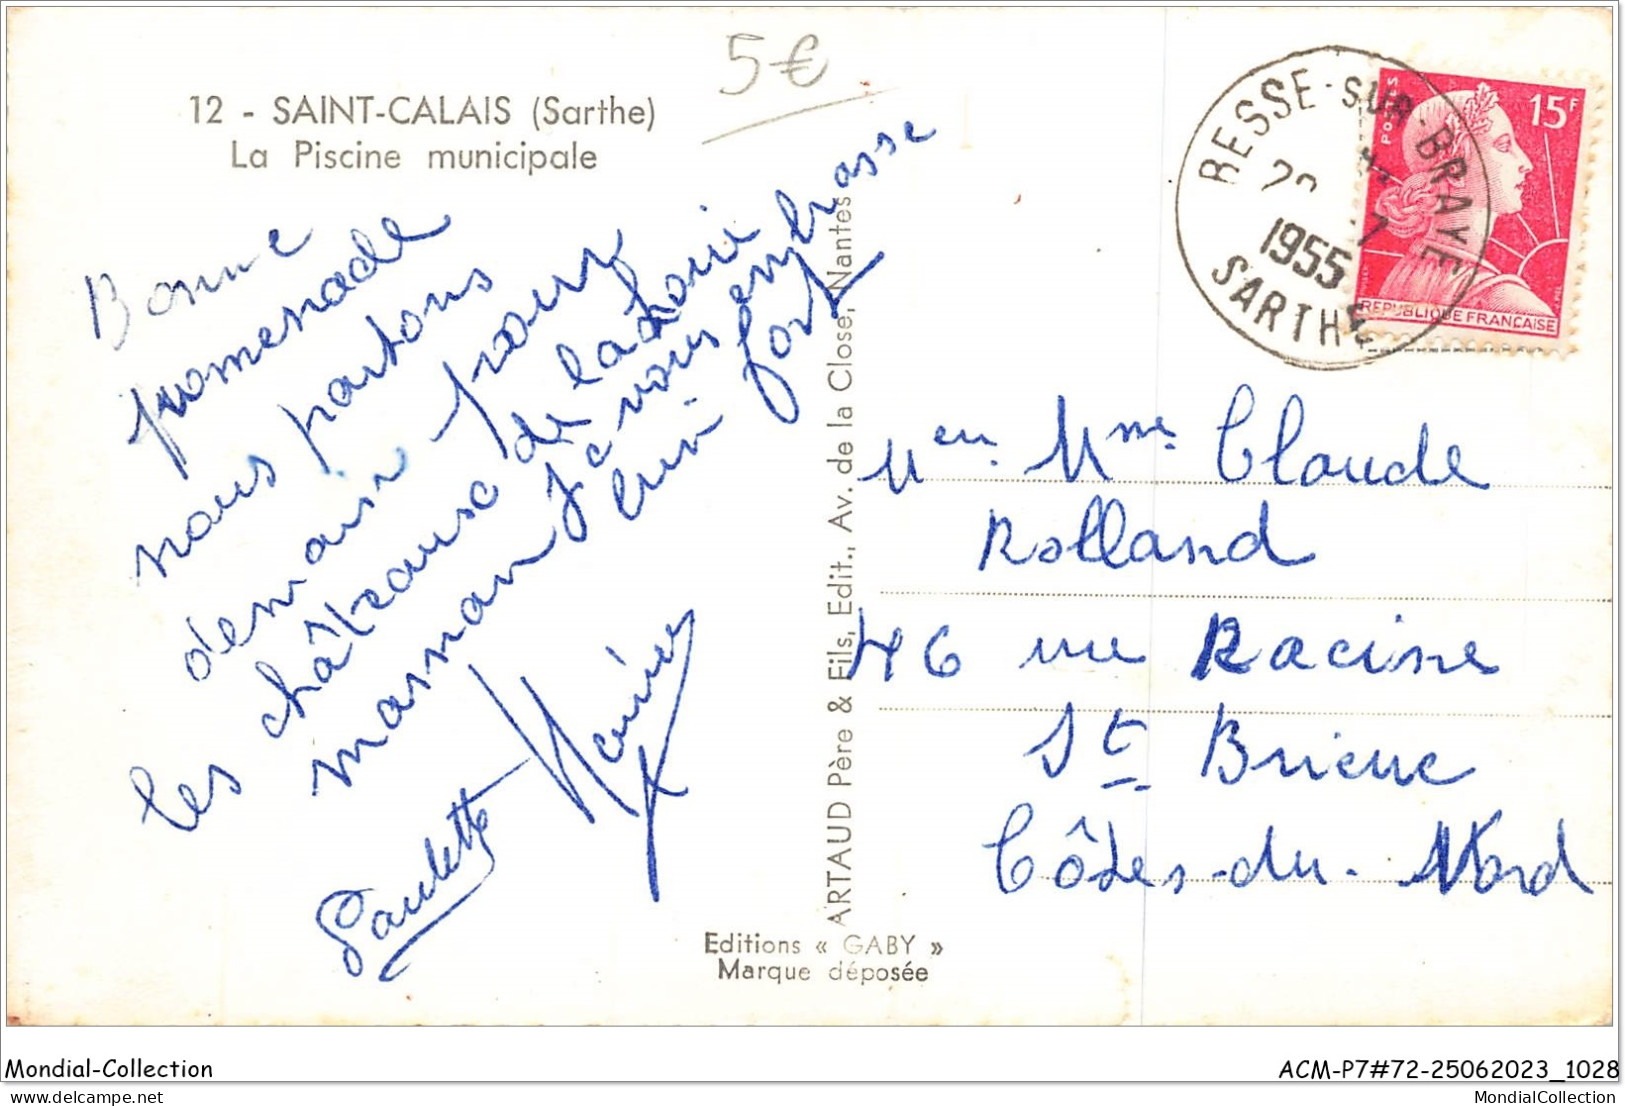 5€
12 - SAINT-CALAIS (Sarthe)
La Piscine municipale
Bonne
promenade
nous partons
demain pour
les châteaux de la Loire
maman je vous embrasse
fort
Paulette
ARTAUD Père & Fils, Edit., Av. de la Close, Nantes
Editions « GABY »
Marque déposée
BESSE-SUR-BRAYE
1955
SARTHE
POSTES
15F
REPUBLIQUE FRANCAISE
Mme Claude
Rolland
46 rue Racine
St Brieuc
Côtes-du-Nord
Mondial-Collection
ACM-P7#72-25062023_1028
delcampe.net
MondialCollection